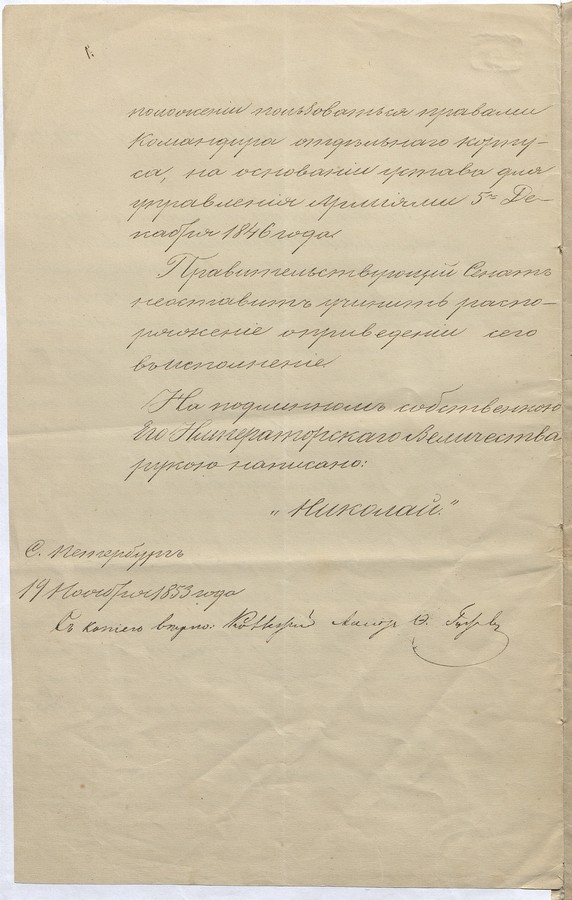 положеніи пользоваться правами
Командира отдѣльнаго корпу-
са, на основаніи устава для
управленія Арміями 5го Де-
кабря 1846 года.
Правительствующій Сенатъ
неоставитъ учинить распо-
ряженіе оприведеніи сего
въисполненіе.
На подлинномъ собственною
Его Императорскаго Величества
рукою написано:
„Николай."
С. Петербургъ
19 Ноября 1853 года
Съ копіею вѣрно: